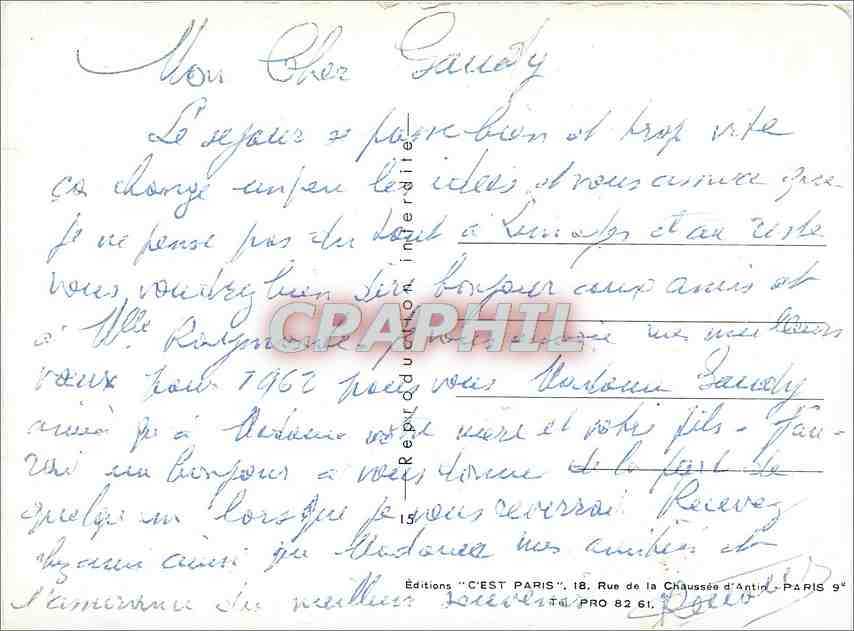 Mon Cher Gaudy
Le sejour se passe bien et trop vite
ça change un peu les idées et vous assure que
je ne pense pas du tout à Limoges et au reste
vous voudrez bien dire bonjour aux amis et
à Mlle Raymonde je vous envoie mes meilleurs
vœux pour 1962 pour vous Madame Gaudy
ainsi qu'à Madame votre mère et votre fils - J'au-
rai un bonjour à vous donner de la part de
quelqu'un lorsque je vous reverrai. Recevez
cher ami ainsi que Madame mes amitiés et
l'assurance du meilleur souvenir
Reproduction interdite
15
CPAPHIL
Éditions "C'EST PARIS", 18, Rue de la Chaussée d'Antin - PARIS 9e
Tél. PRO 82 61.